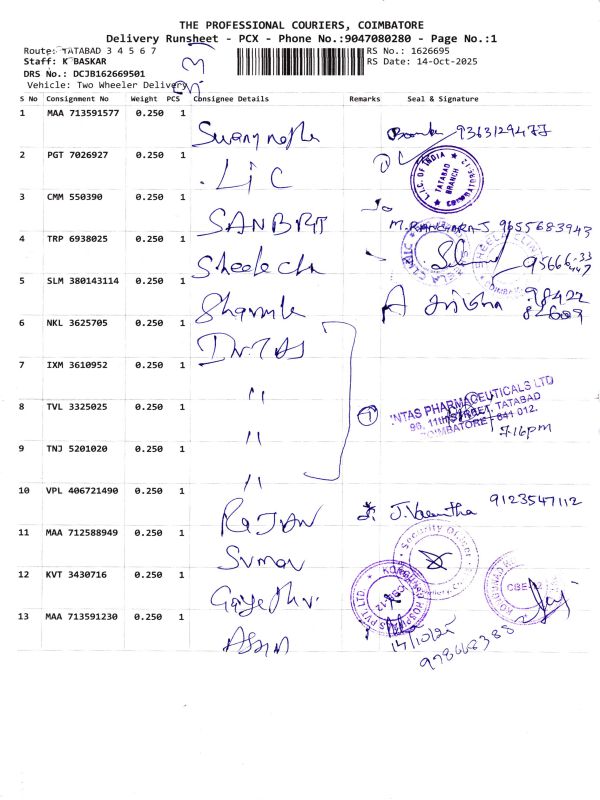 THE PROFESSIONAL COURIERS, COIMBATORE
Delivery Runsheet - PCX - Phone No.:9047080280 - Page No.:1
Route: TATABAD 3 4 5 6 7
RS No.: 1626695
Staff: K BASKAR
RS Date: 14-Oct-2025
DRS No.: DCJB162669501
Vehicle: Two Wheeler Delivery
S No Consignment No Weight PCS Consignee Details Remarks Seal & Signature
1 MAA 713591577 0.250 1
9363129477
2 PGT 7026927 0.250 1 LIC
L.I.C. OF INDIA TATABAD BRANCH
3 CMM 550390 0.250 1
9655683943
4 TRP 6938025 0.250 1
5 SLM 380143114 0.250 1
6 NKL 3625705 0.250 1
7 IXM 3610952 0.250 1 "
8 TVL 3325025 0.250 1 "
INTAS PHARMACEUTICALS LTD
96, 11th STREET, TATABAD
COIMBATORE - 641 012.
716pm
9 TNJ 5201020 0.250 1 "
10 VPL 406721490 0.250 1 RAJAN J. Vasantha 9123547112
11 MAA 712588949 0.250 1 Suman
Security Officer
12 KVT 3430716 0.250 1
13 MAA 713591230 0.250 1
14/10/25